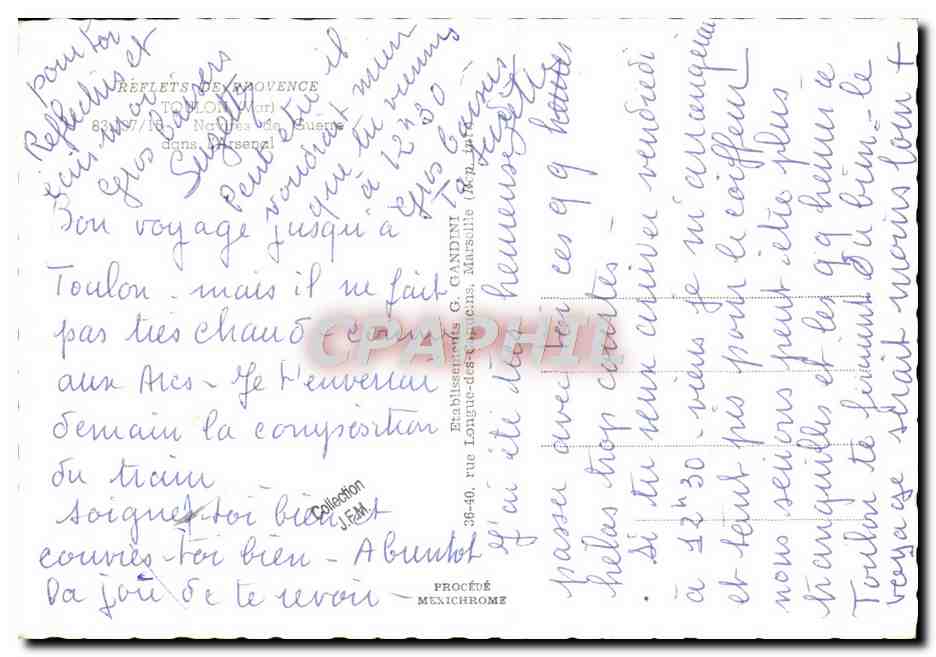 REFLETS DE PROVENCE
TOULON (Var)
Navires de Guerre
dans l'Arsenal
Bon voyage jusqu'à
Toulon - mais il ne fait
pas très chaud - comme
aux Arcs - Je t'enverrai
demain la composition
du train
soignes toi bien et
couvres-toi bien - A bientot
La joie de te revoir -
pour toi
Réflechis et
écris moi
Gros baisers
Suzette
Peut être il
voudrait mieux
que tu viennes
à 12h30
Gros baisers
Ta Suzette
Etablissements G. GANDINI
36-40, rue Longue-des-Capucins, Marseille
PROCÉDÉ
MEXICHROME
Collection
J.F.M.
CPAPHIL
J'ai été très heureuse de
passer avec toi ces qq
hélas trop courtes -
Si tu veux arriver vendredi
à 12h30 - viens je m'arrangerai
et tant pis pour le coiffeur
nous serions peut-être plus
tranquilles et les qq heures à
Toulon te feraient du bien - le
voyage serait moins long +